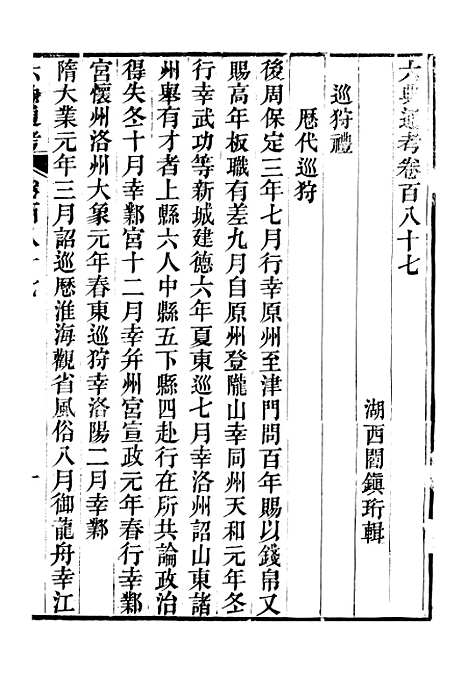 六典通考卷百八十七
湖西閻鎮珩輯
巡狩禮
歷代巡狩
後周保定三年七月行幸原州至津門問百年賜以錢帛又
賜高年板職有差九月自原州登隴山幸同州天和元年冬
行幸武功等新城建德六年夏東巡七月幸洛州詔山東諸
州舉有才者上縣六人中縣五下縣四赴行在所共論政治
得失冬十月幸鄴宮十二月幸幷州宮宣政元年春行幸鄴
宮懷州洛州大象元年春東巡狩幸洛陽二月幸鄴
隋大業元年三月詔巡歷淮海觀省風俗八月御龍舟幸江
六典通考
卷百八十七
一